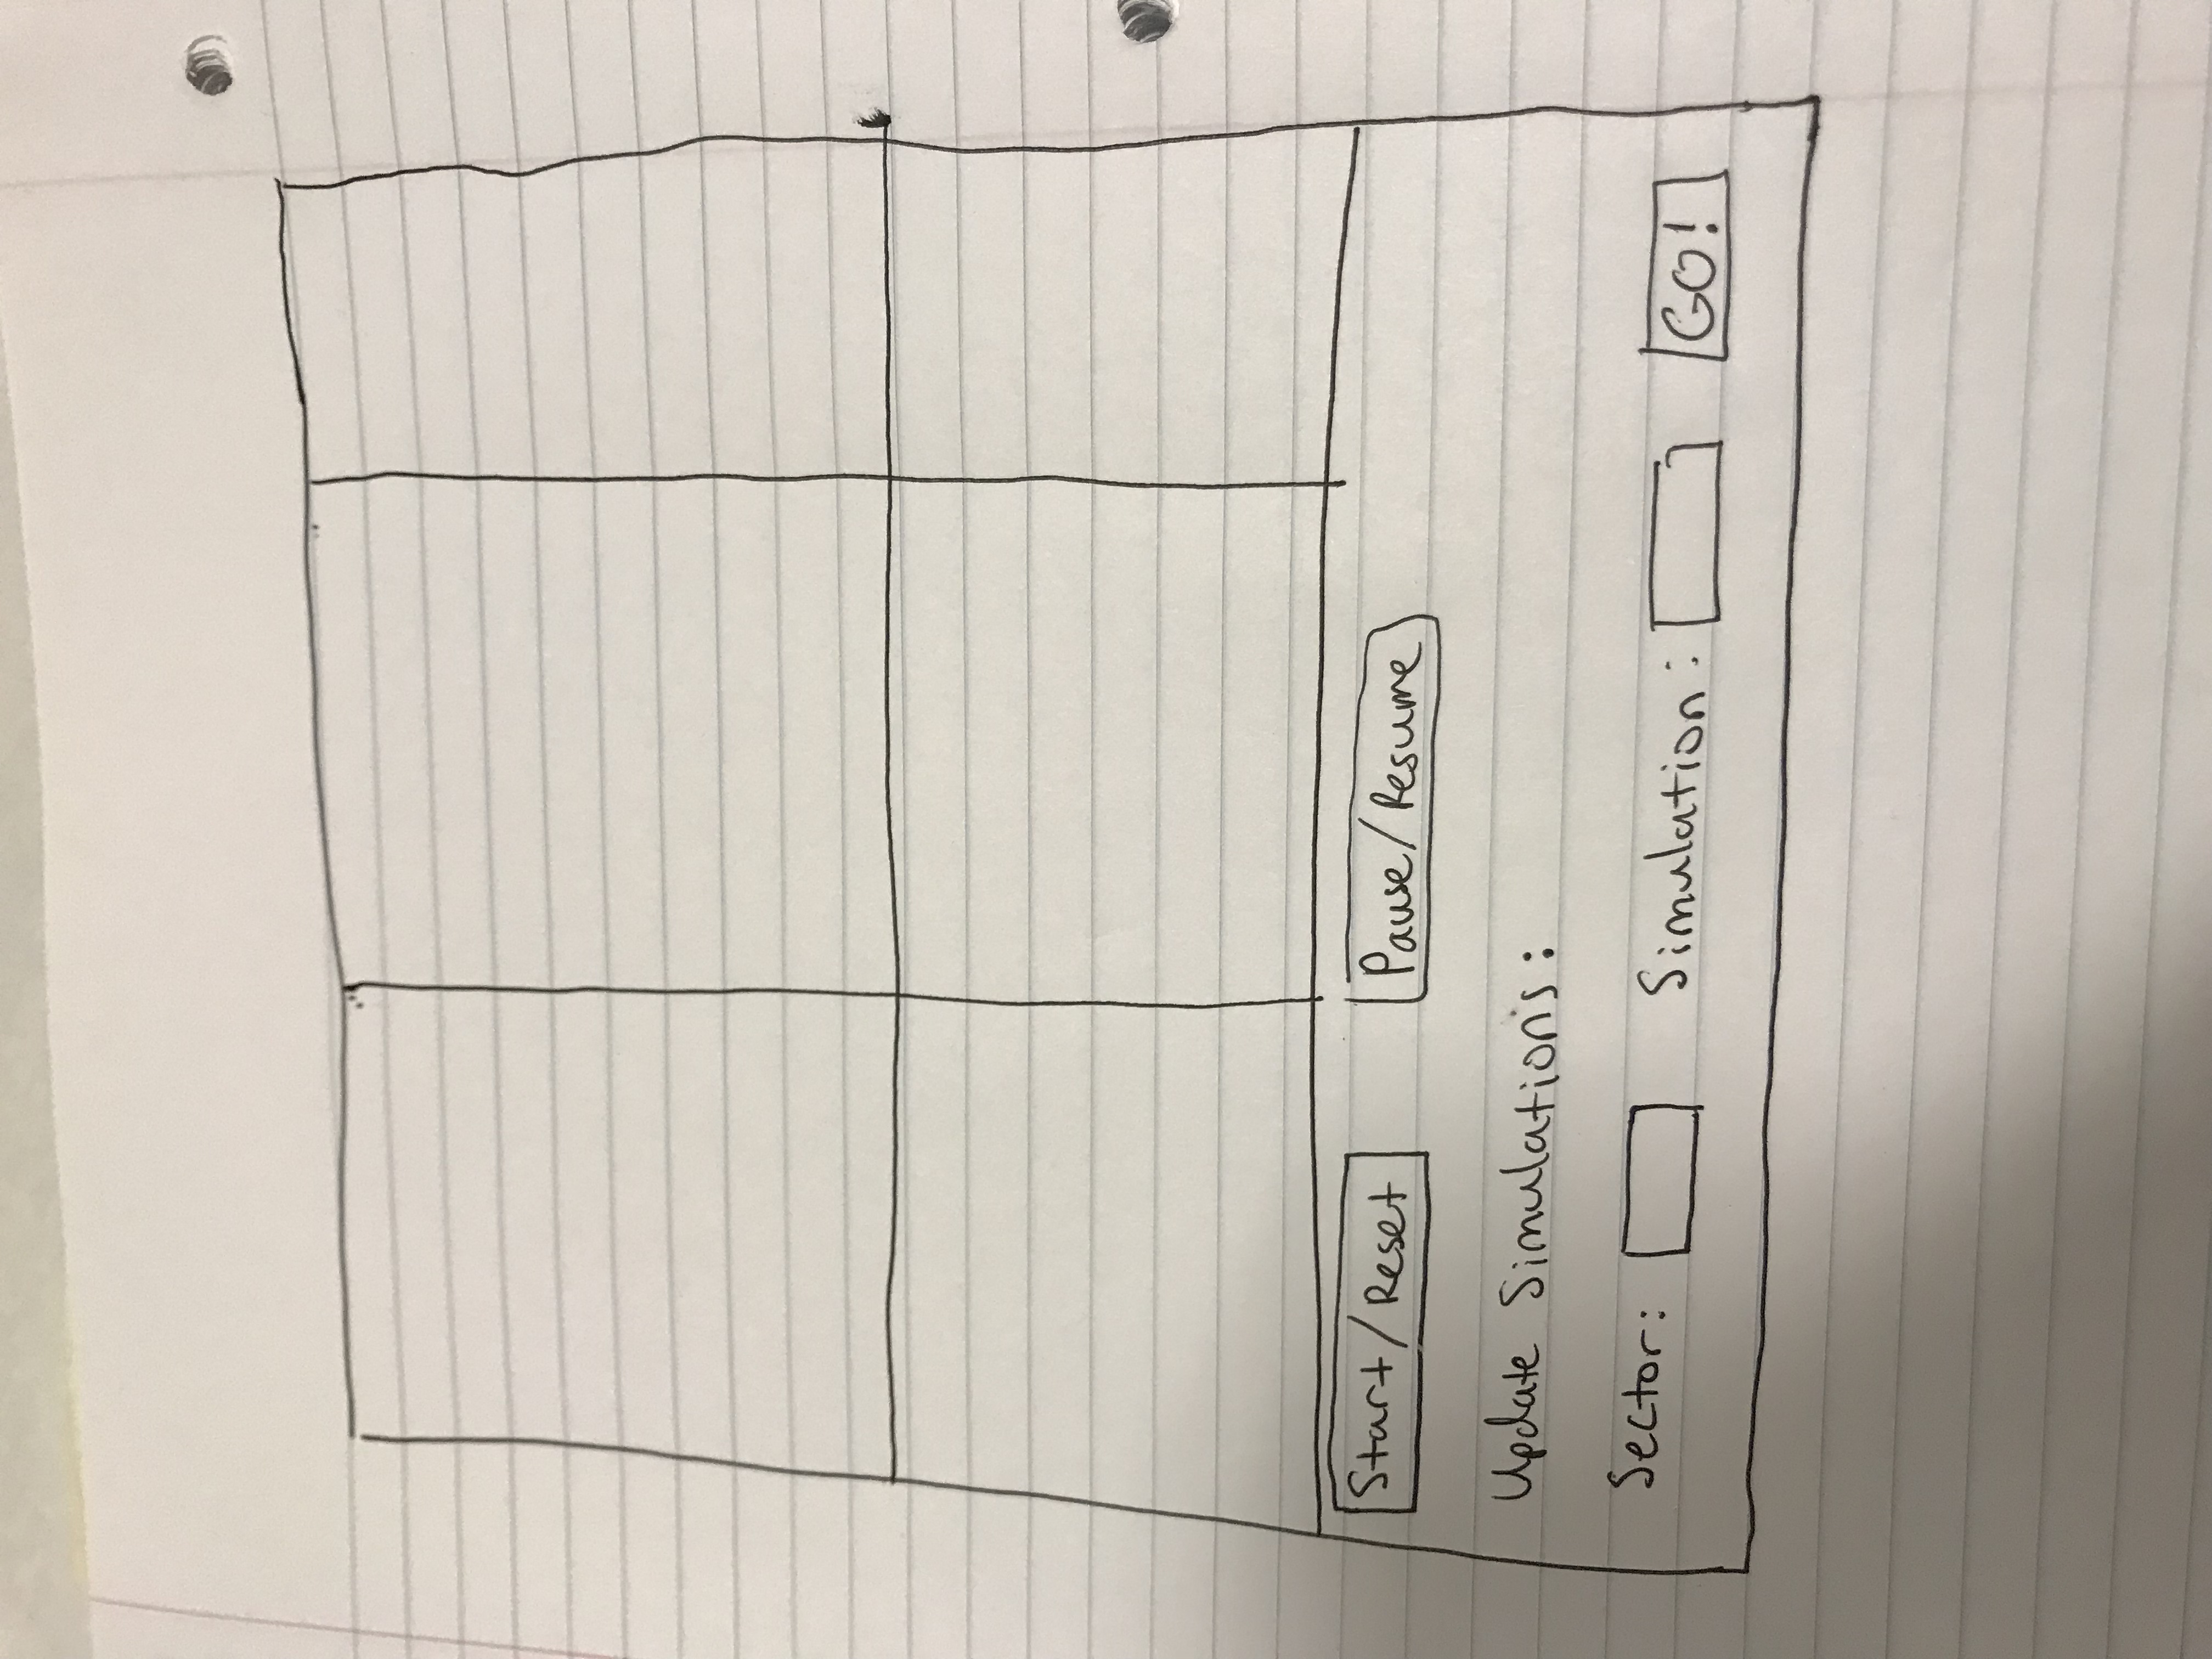 Start/Reset Pause/Resume
Update Simulations:
Sector: Simulation: GO!